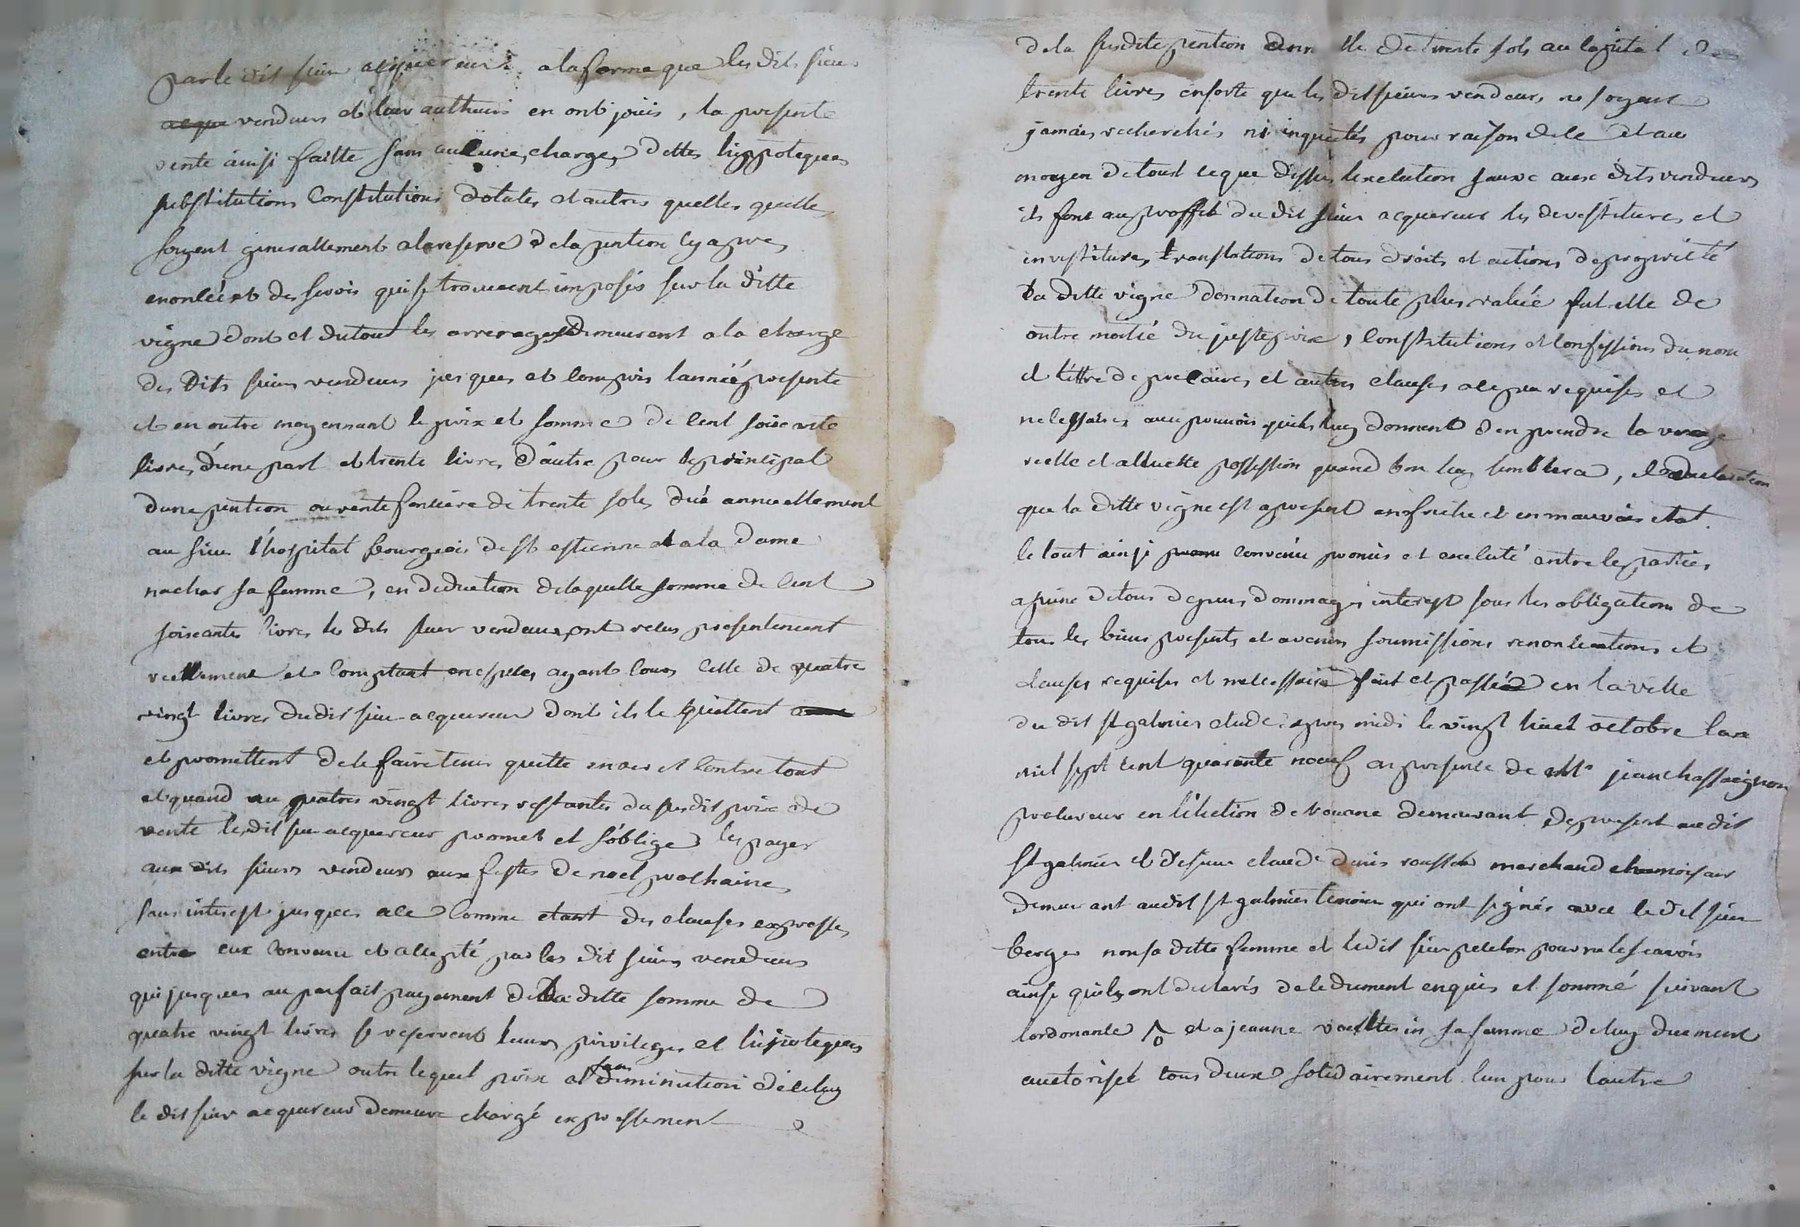 par le dit sieur acquereur a la forme que les dits sieurs
acque vendeurs et leur autheurs en ont jouis, la presente
vente ainsi faitte sans aucune, charges, dettes hippoteques
substitutions Constitutions dotales et autres quelles quelles
soyent generallement a la reserve de la pention cy apres
enoncée et des servis qui se trouveront imposés sur la ditte
vigne dont et du tout les arrerages demeurent a la charge
des dits sieurs vendeurs jusques et compris l'année presente
et en outre moyennant le prix et somme de cent soixante
livres d'une part et trente livres d'autre pour le principal
d'une pention ou rente fonciere de trente sols düe annuellement
au sieur l'hospital bourgeois de st estienne et a la dame
nachar sa femme, en deduction de laquelle somme de cent
soixantes livres les dits sieur vendeurs ont recus presentement
reellement et comptant en especes ayant cours celle de quatre
vingt livres du dit sieur acquereur dont ils le quittent
et promettent de le faire tenir quitte envers et contre tout
et quand au quatres vingt livres restantes du susdit prix de
vente ledit sieur acquereur promet et s'oblige les payer
aux dits sieurs vendeurs aux festes de noel prochaine
sans interest jusques a ce comme etant des clauses expresses
entre eux convenu et accepté par les dit sieurs vendeurs
qui jusques au parfait payement de la ditte somme de
quatre vingt livres se reservent leurs privileges et hipoteques
sur la ditte vigne outre lequel prix et sans diminution d'iceluy
le dit sieur acquereur demeure chargé expressement
de la susdite pention de trente sols au capital de
trente livres ensorte que les dit sieurs vendeurs ne soyent
jamais recherchés ni inquietés pour raison de ce et au
moyen de tout ce que dessus l'execution sauve aux dits vendeurs
ils font au proffit du dit sieur acquereur les devestitures et
investitures, translations de tous droits et actions de proprietté
La ditte vigne donnation de toute plus valüe fut elle de
outre moitié du juste prix, constitutions et confessions du nom
et tittre de precaires, et autres clauses a ce requises et
necessaires avec pouvoir quils luy donnent d'en prendre la vraye
reelle et actuelle possession quand bon luy semblera, et declaration
que la ditte vigne est a present en friche et en mauvais etat.
le tout ainsi convenu promis et executé entre les parties,
a peine de tous depens dommages interest sous les obligations de
tous les biens presents et avenirs soumissions renonciations et
clauses requises et necessaire fait et passé en la ville
du dit st galmier etude apres midi le vingt huit octobre l'an
mil sept cent quarante neuf en presence de Me jean chassaignon
procureur en l'election de roanne demeurant de present audit
st galmier et de sieur claude denis rousset marchand chamoiseur
demeurant audit st galmier temoins qui ont signés avec le dit sieur
berger non sa ditte femme et ledit sieur peleton pour ne le scavoir
ainsi quils ont declarés de ce dument enquis et sommé suivant
l'ordonance et a jeanne sa femme de luy duement
auctorisée tous deux solidairement l'un pour l'autre